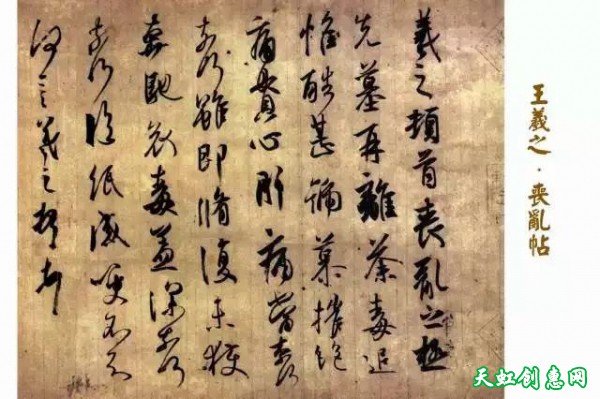 王羲之·喪亂帖
羲之頓首喪亂之極
先墓再離荼毒追
惟酷甚號慕摧絕
痛貫心肝痛當奈何
奈何雖即脩復未獲
奔馳哀毒益深奈何
奈何臨紙感哽不知
何言羲之頓首頓首
天虹创惠网